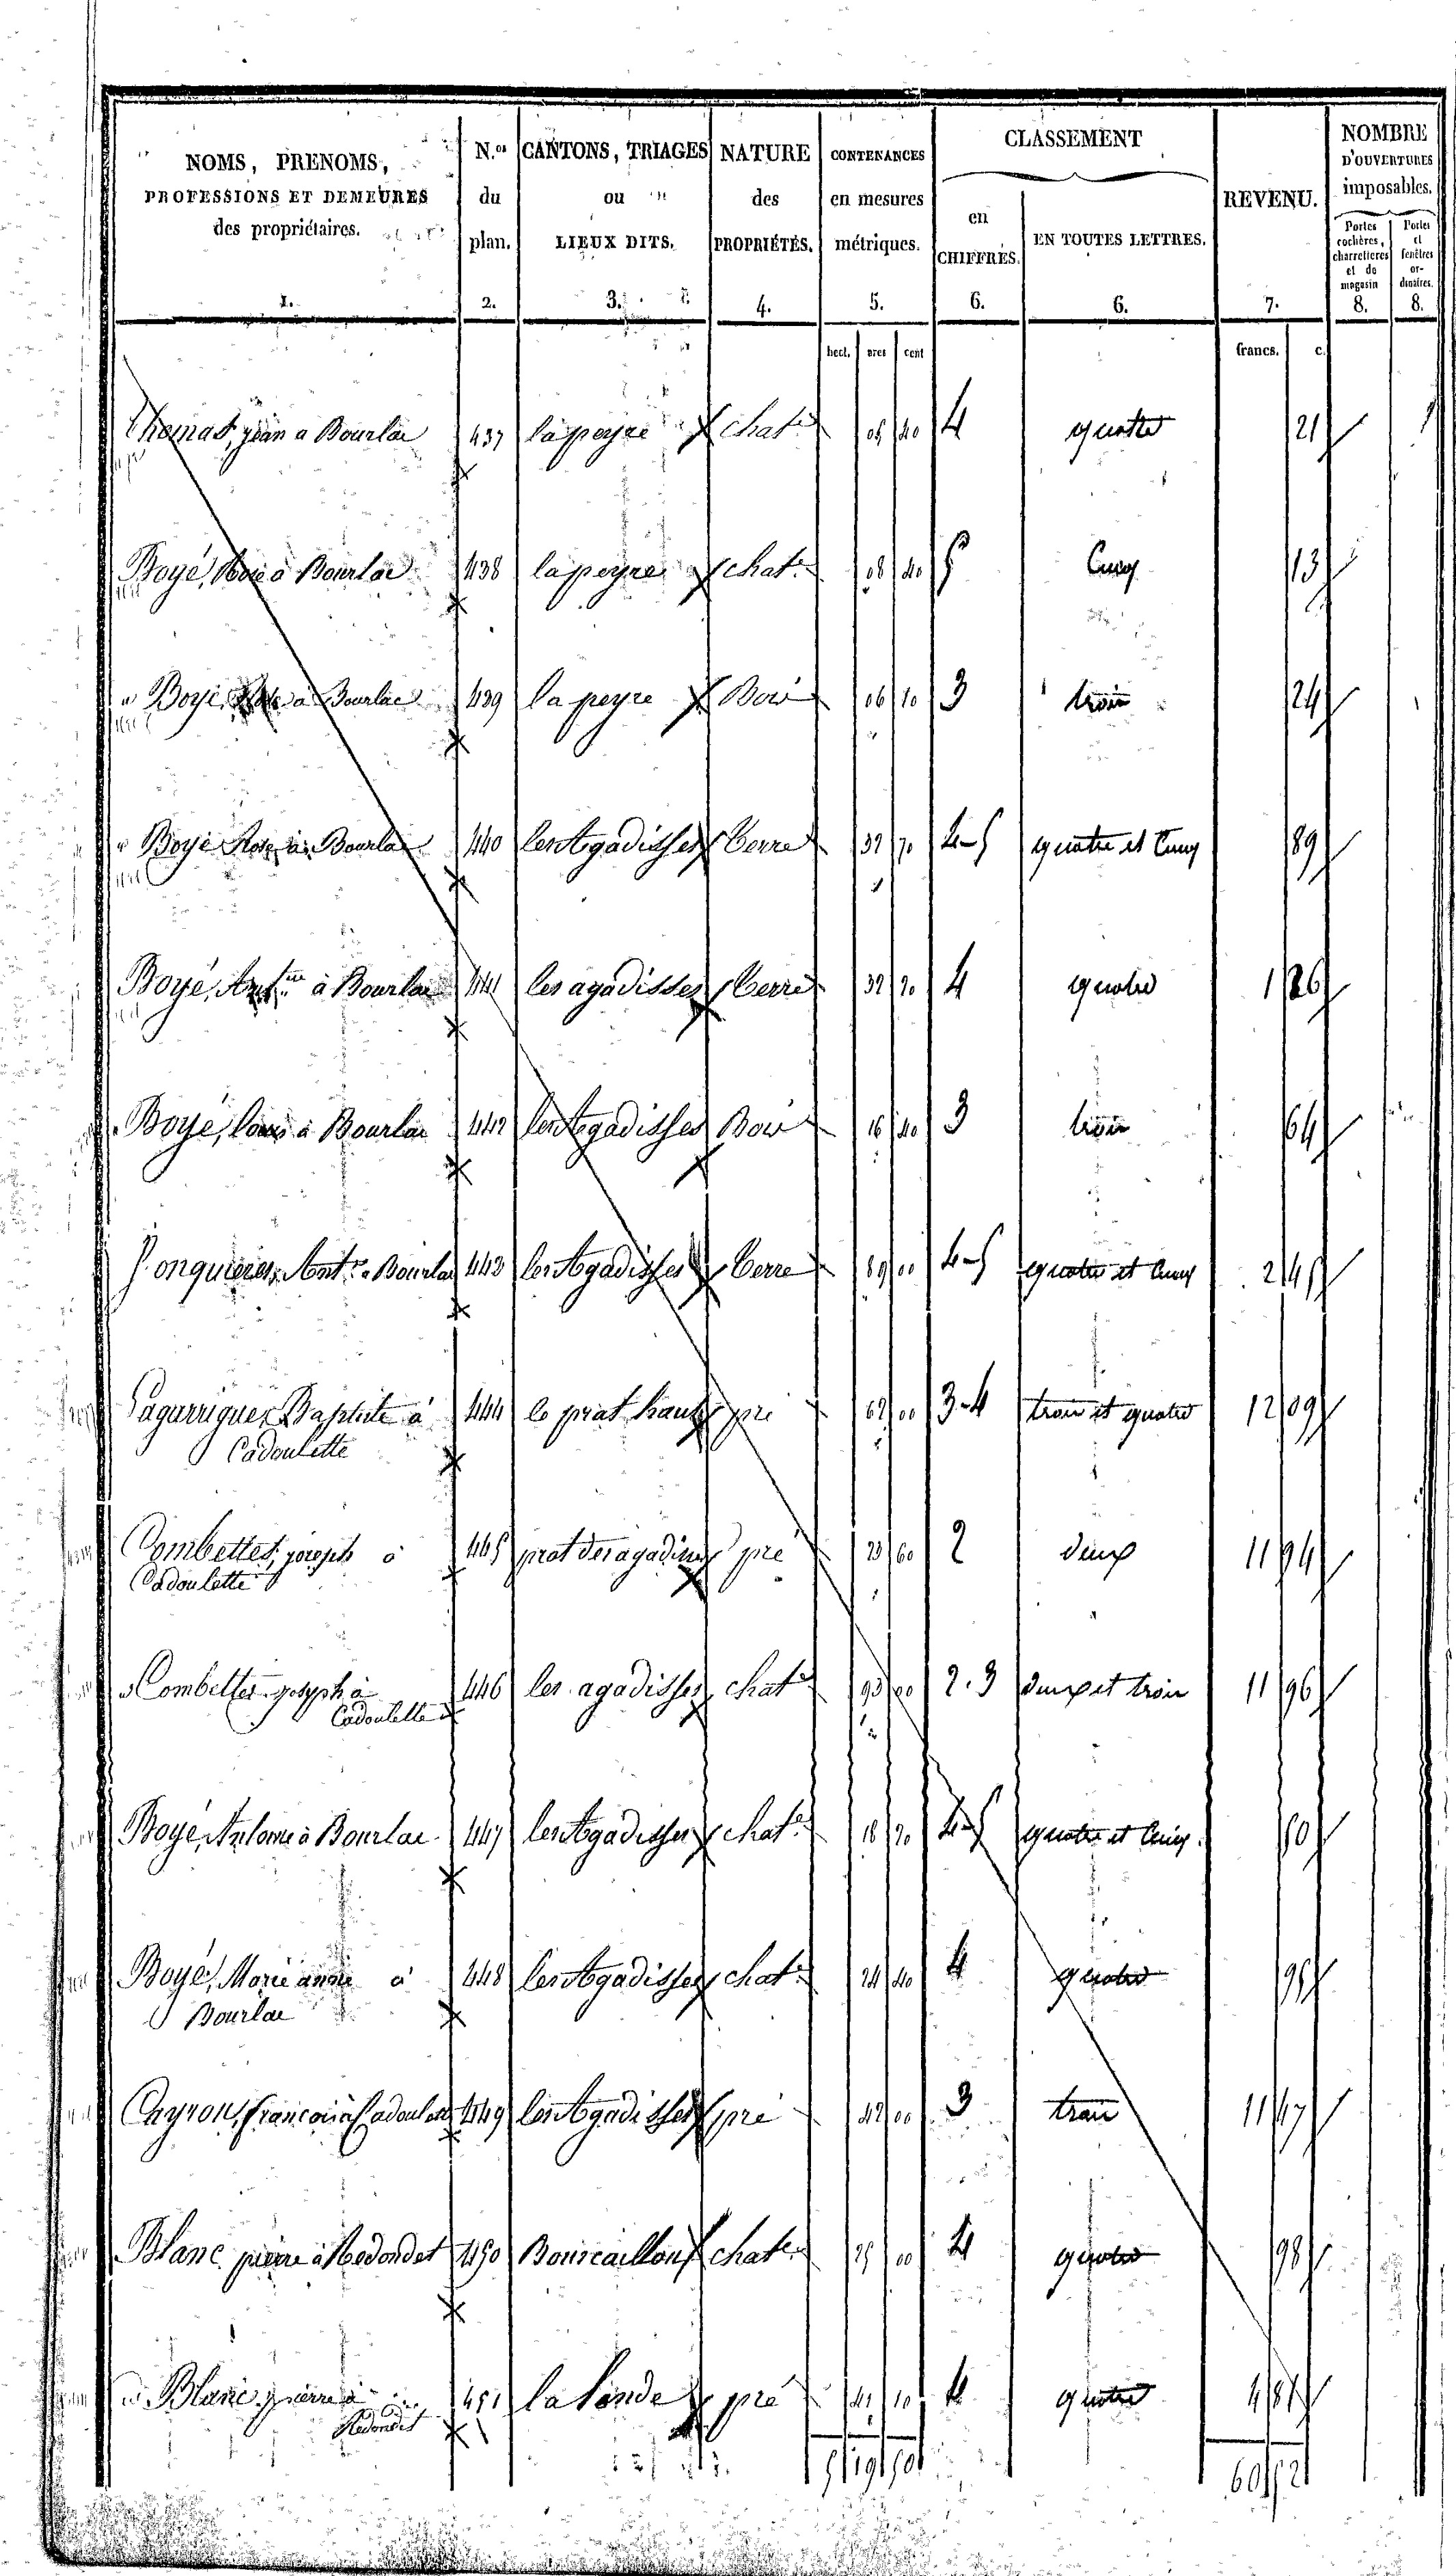 NOMS, PRENOMS, PROFESSIONS ET DEMEURES des propriétaires. 1. | N.os du plan. 2. | CANTONS, TRIAGES ou LIEUX DITS. 3. | NATURE des PROPRIÉTÉS. 4. | CONTENANCES en mesures métriques. 5. | CLASSEMENT en CHIFFRES. 6. | EN TOUTES LETTRES. 6. | REVENU. 7. | NOMBRE D'OUVERTURES imposables. Portes cochères, charretières et de magasin 8. | Portes et fenêtres ordinaires. 8.
hect. ares cent francs. c.
Thomas, jean a Bourlac 437 la peyre chat.e 05 40 4 quatre 21
Boyé, à Bourlac 438 la peyre chat.e 08 40 5 Cinq 13
" Boyé, à Bourlac 439 la peyre Bois 06 10 3 trois 24
" Boyé Rose à Bourlac 440 les Agadisses terre 32 70 4-5 quatre et Cinq 89
Boyé, Ant.ne à Bourlac 441 les agadisses terre 32 20 4 quatre 1 26
Boyé, Louis à Bourlac 442 les Agadisses Bois 16 40 3 trois 64
Jonquieres, Ant.e a Bourlac 443 les Agadisses terre 89 00 4-5 quatre et Cinq 2 45
Lagarrigue, Baptiste à 444 le prat haut pré 62 00 3-4 trois et quatre 12 09
Cadoulette
Combettes, joseph à 445 prat des agadisses pré 23 60 2 deux 11 94
Cadoulette
" Combettes joseph à 446 les agadisses chat.e 93 00 2.3 deux et trois 11 96
Cadoulette
Boyé, Antoine à Bourlac 447 les Agadisses chat.e 18 20 4-5 quatre et Cinq 50
Boyé, Marie anne à 448 les Agadisses chat.e 24 40 4 quatre 95
Bourlac
Cayron, francois à Cadoulette 449 les Agadisses pré 42 00 3 trois 11 47
Blanc pierre à Redondet 450 Bouscaillou chat.e 25 00 4 quatre 98
" Blanc pierre à 451 la fonde pré 41 10 4 quatre 4 81
Redondet
5 19 50 60 52